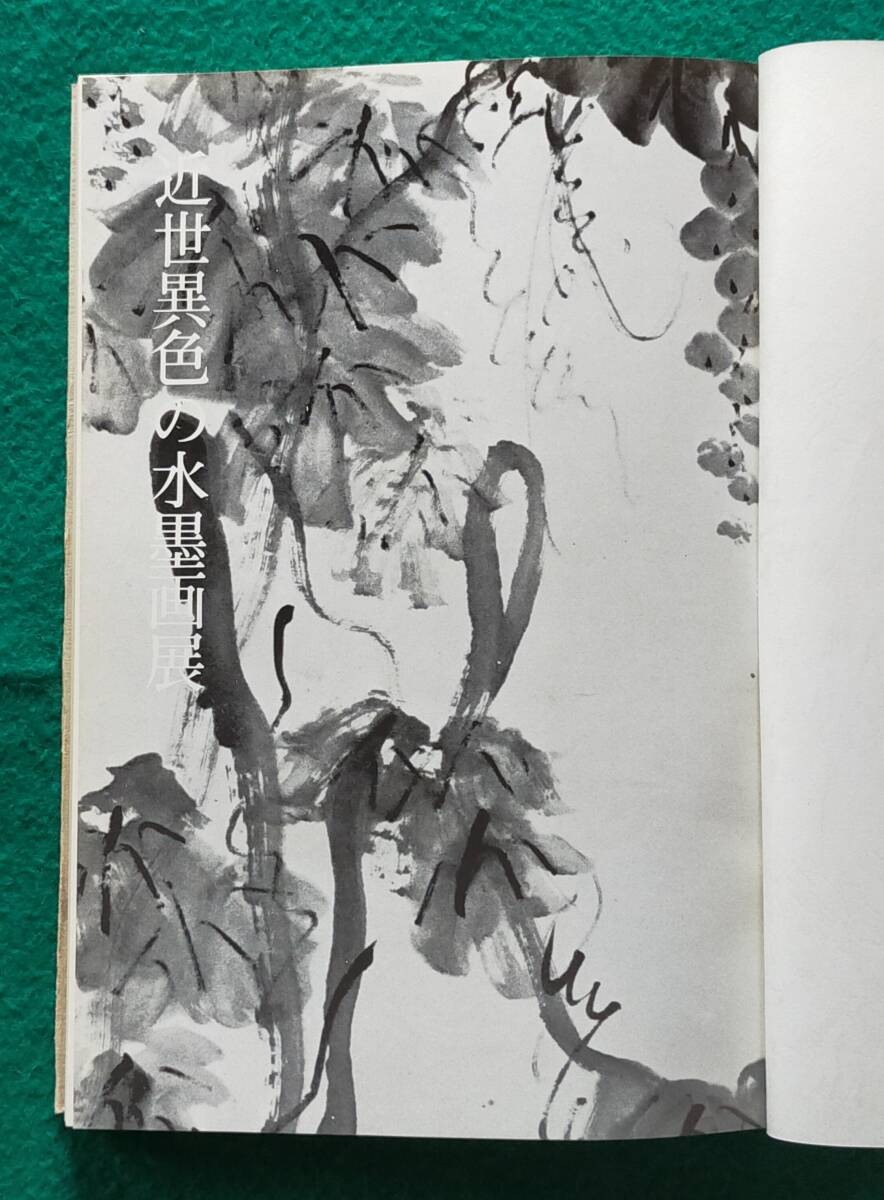 近世異色の水墨画展